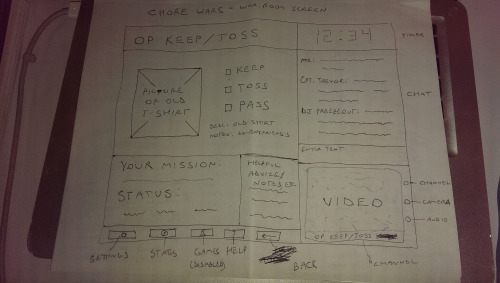 CHORE WARS - WAR ROOM SCREEN
OP: KEEP/TOSS
12:34
TIMER
PICTURE
OF OLD
T-SHIRT
KEEP
TOSS
PASS
OLD SHIRT
NOTES:
ME:
CPT. TREVOR:
DJ
CHAT
ENTER TEXT
YOUR MISSION:
STATUS:
HELPFUL
ADVICE/
NOTES ETC.
VIDEO
OP KEEP/TOSS
CHANNEL
CAMERA
AUDIO
SETTINGS
STATS
GAMES
(DISABLED)
HELP
?
BACK
CHANNEL